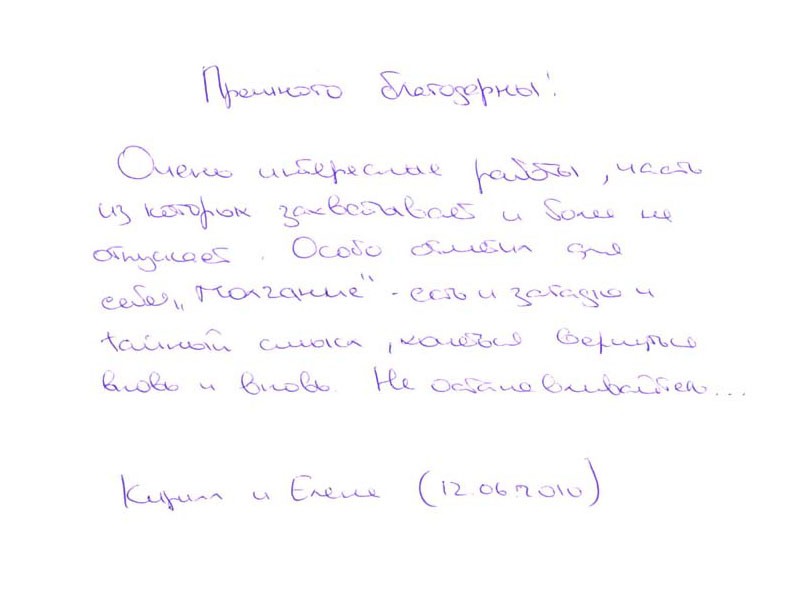 Премного благодарны!
Очень интересные работы, часть
из которых захватывает и более не
отпускает. Особо отметил для
себя „Молчание" - есть и загадка и
тайный смысл, хочется вернуться
вновь и вновь. Не останавливайтесь...
Кирилл и Елена (12.06.2010)